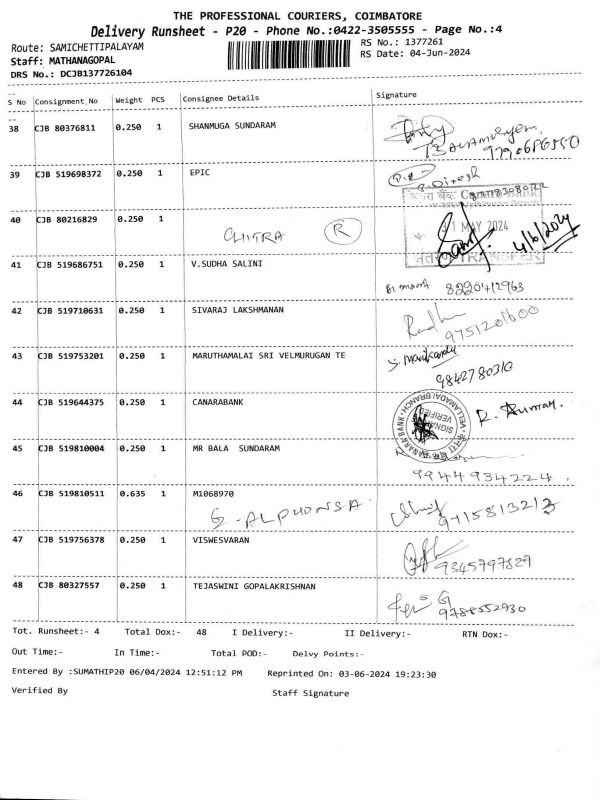 THE PROFESSIONAL COURIERS, COIMBATORE
Delivery Runsheet - P20 - Phone No.:0422-3505555 - Page No.:4
Route: SAMICHETTIPALAYAM RS No.: 1377261
Staff: MATHANAGOPAL RS Date: 04-Jun-2024
DRS No.: DCJB137726104
S No Consignment.No Weight PCS Consignee Details Signature
38 CJB 80376811 0.250 1 SHANMUGA SUNDARAM
39 CJB 519698372 0.250 1 EPIC
P. Dinesh
40 CJB 80216829 0.250 1
CHITRA R
31 MAY 2024
4/6/2024
TRANSFER
41 CJB 519686751 0.250 1 V.SUDHA SALINI
8220412963
42 CJB 519710631 0.250 1 SIVARAJ LAKSHMANAN
Radha
9751201600
43 CJB 519753201 0.250 1 MARUTHAMALAI SRI VELMURUGAN TE
S. Manikandan
9842780310
44 CJB 519644375 0.250 1 CANARABANK
CANARA BANK VELLAMADAI BRANCH
SIGNATURE VERIFIED
R. Kumar.
45 CJB 519810004 0.250 1 MR BALA SUNDARAM
9944934224.
46 CJB 519810511 0.635 1 M1068970
G-ALPHONSA
9715813213
47 CJB 519756378 0.250 1 VISWESVARAN
9345797829
48 CJB 80327557 0.250 1 TEJASWINI GOPALAKRISHNAN
9788552930
Tot. Runsheet:- 4 Total Dox:- 48 I Delivery:- II Delivery:- RTN Dox:-
Out Time:- In Time:- Total POD:- Delvy Points:-
Entered By :SUMATHIP20 06/04/2024 12:51:12 PM Reprinted On: 03-06-2024 19:23:30
Verified By Staff Signature